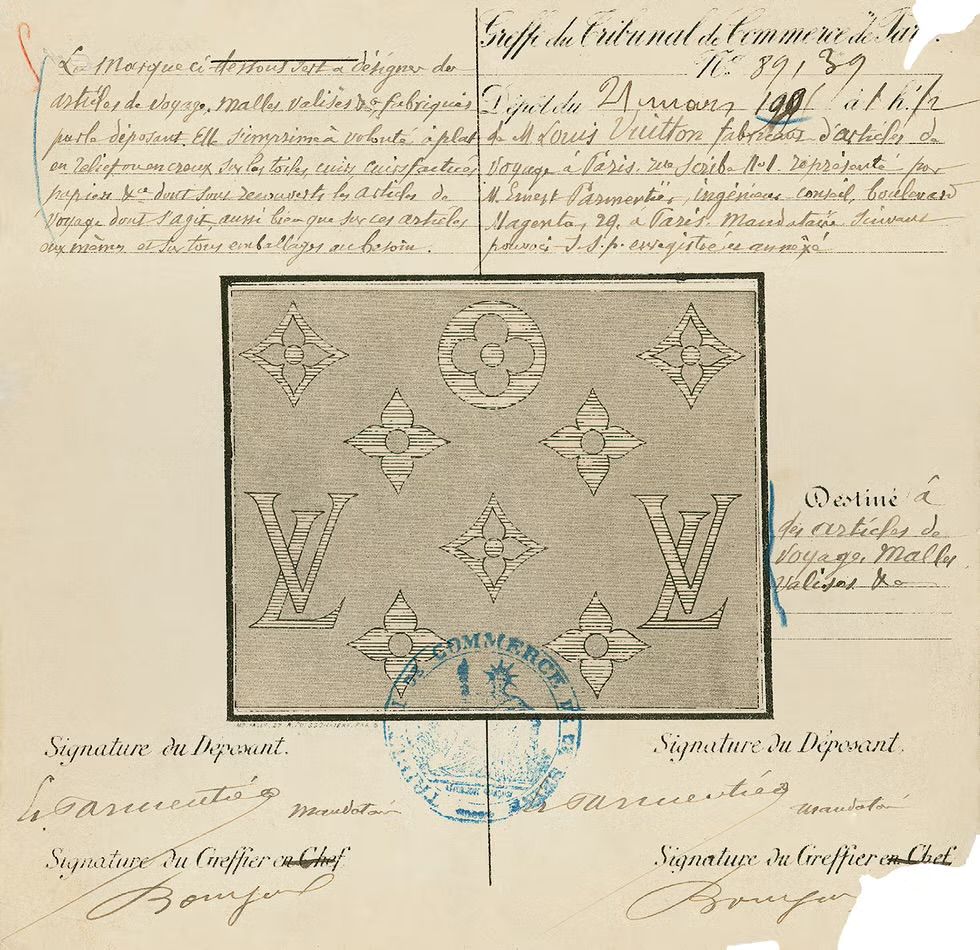 La Marque ci-dessous sert à désigner des
articles de voyage, malles, valises &a fabriqués
par le déposant. Elle s'imprime à volonté à plat
en relief ou en creux sur les toiles, cuirs, cuirs factices
papiers &ca dont sont recouverts les articles de
voyage dont s'agit, aussi bien que sur ces articles
eux mêmes, et sur tous emballages au besoin.
Greffe du Tribunal de Commerce de Paris.
No 89,39
Dépôt du 21 mars à 1 h 1/2
de M Louis Vuitton fabricant d'articles de
voyage à Paris, rue Scribe No 1. représenté par
M. Ernest Parmentier, ingénieur conseil, boulevard
Magenta, 29, à Paris, mandataire suivant
pouvoir s.s.p. enregistré et annexé
LV
LV
Destiné à
des articles de
voyage, Malles
valises &a
TRIBUNAL DE COMMERCE DE LA SEINE
Signature du Déposant.
E Parmentier mandataire
Signature du Greffier en Chef
Signature du Déposant.
E Parmentier mandataire
Signature du Greffier en Chef